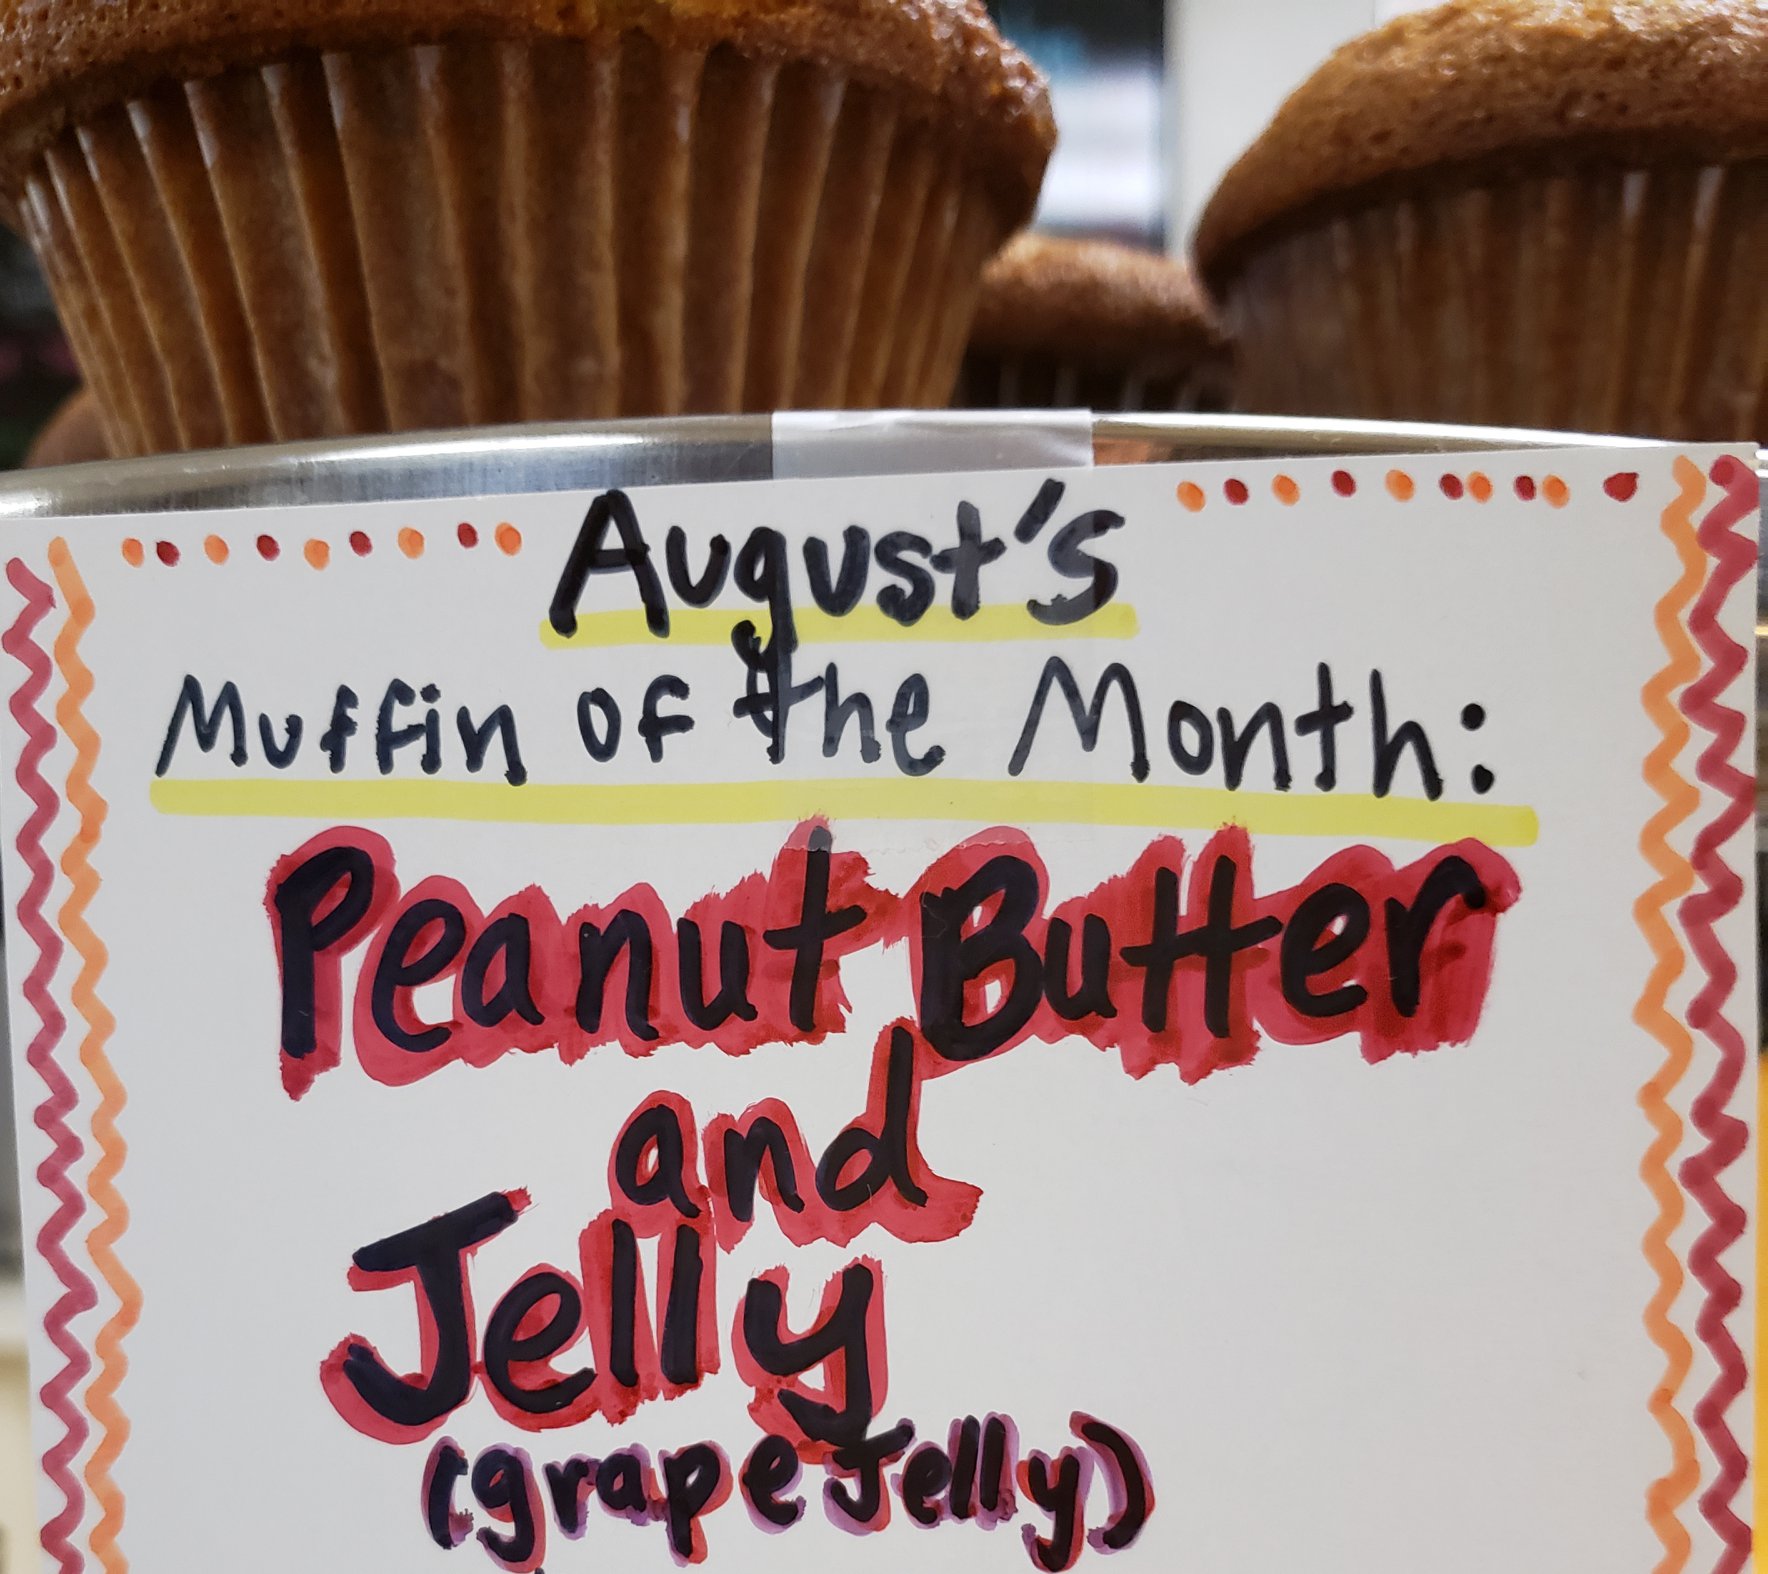 August's
Muffin of the Month:
Peanut Butter
and
Jelly
(grape Jelly)